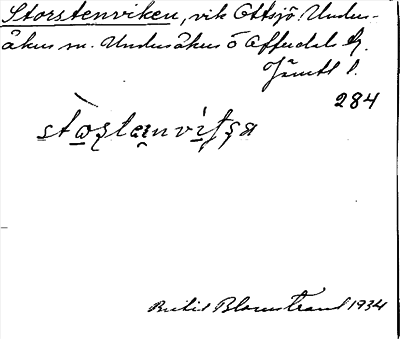 Storstenviken, vik Ottsjö. Unders-
åkers sn. Undersåkers o Offerdals tg.
Jämtl l.
284
Brita Blomstrand 1934